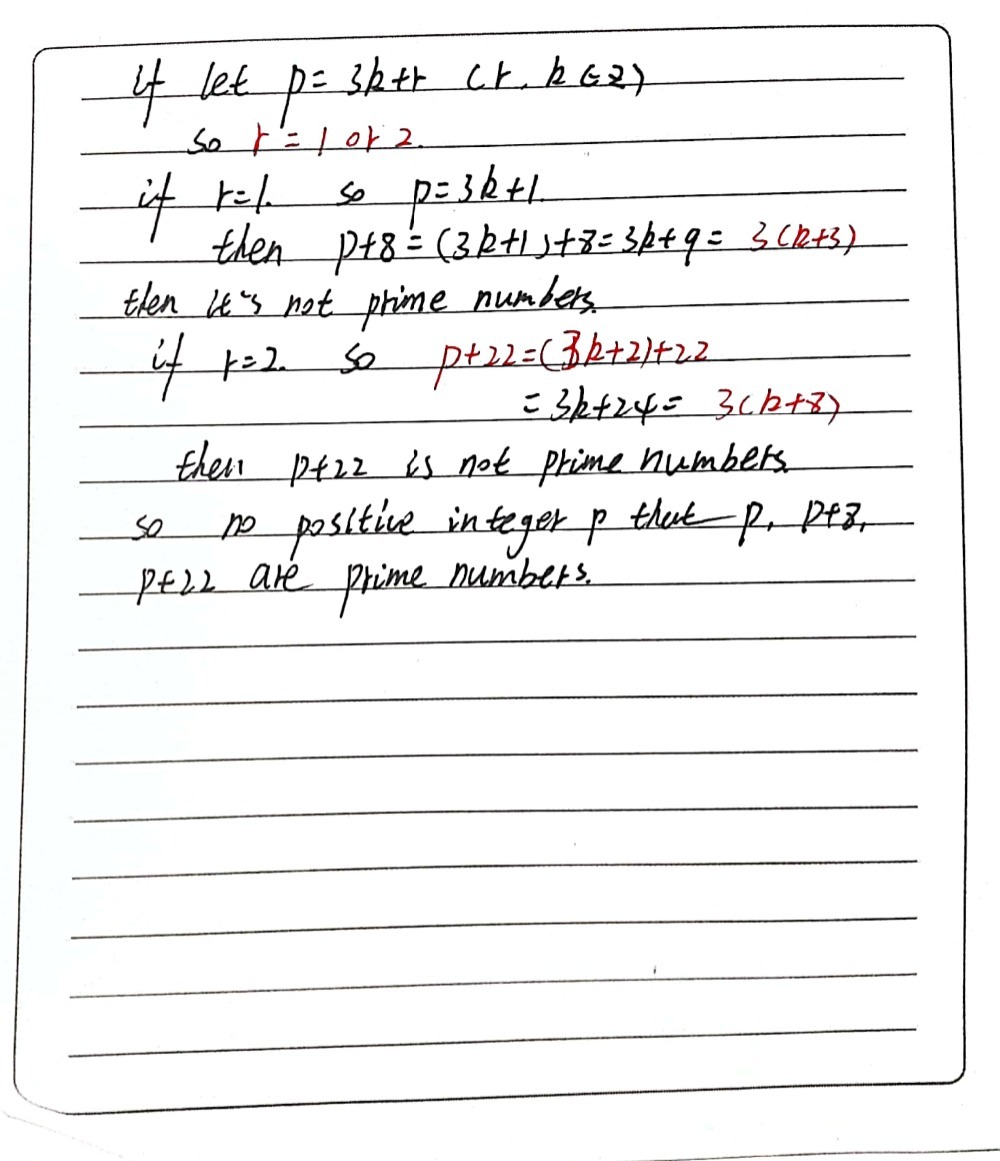 if let p = 3k+r (r, k ∈ Z)
so r = 1 or 2.
if r=1. so p=3k+1.
then p+8 = (3k+1)+8 = 3k+9 = 3(k+3)
then it's not prime numbers.
if r=2. so p+22=(3k+2)+22
= 3k+24 = 3(k+8)
then p+22 is not prime numbers.
so no positive integer p that p, p+8,
p+22 are prime numbers.